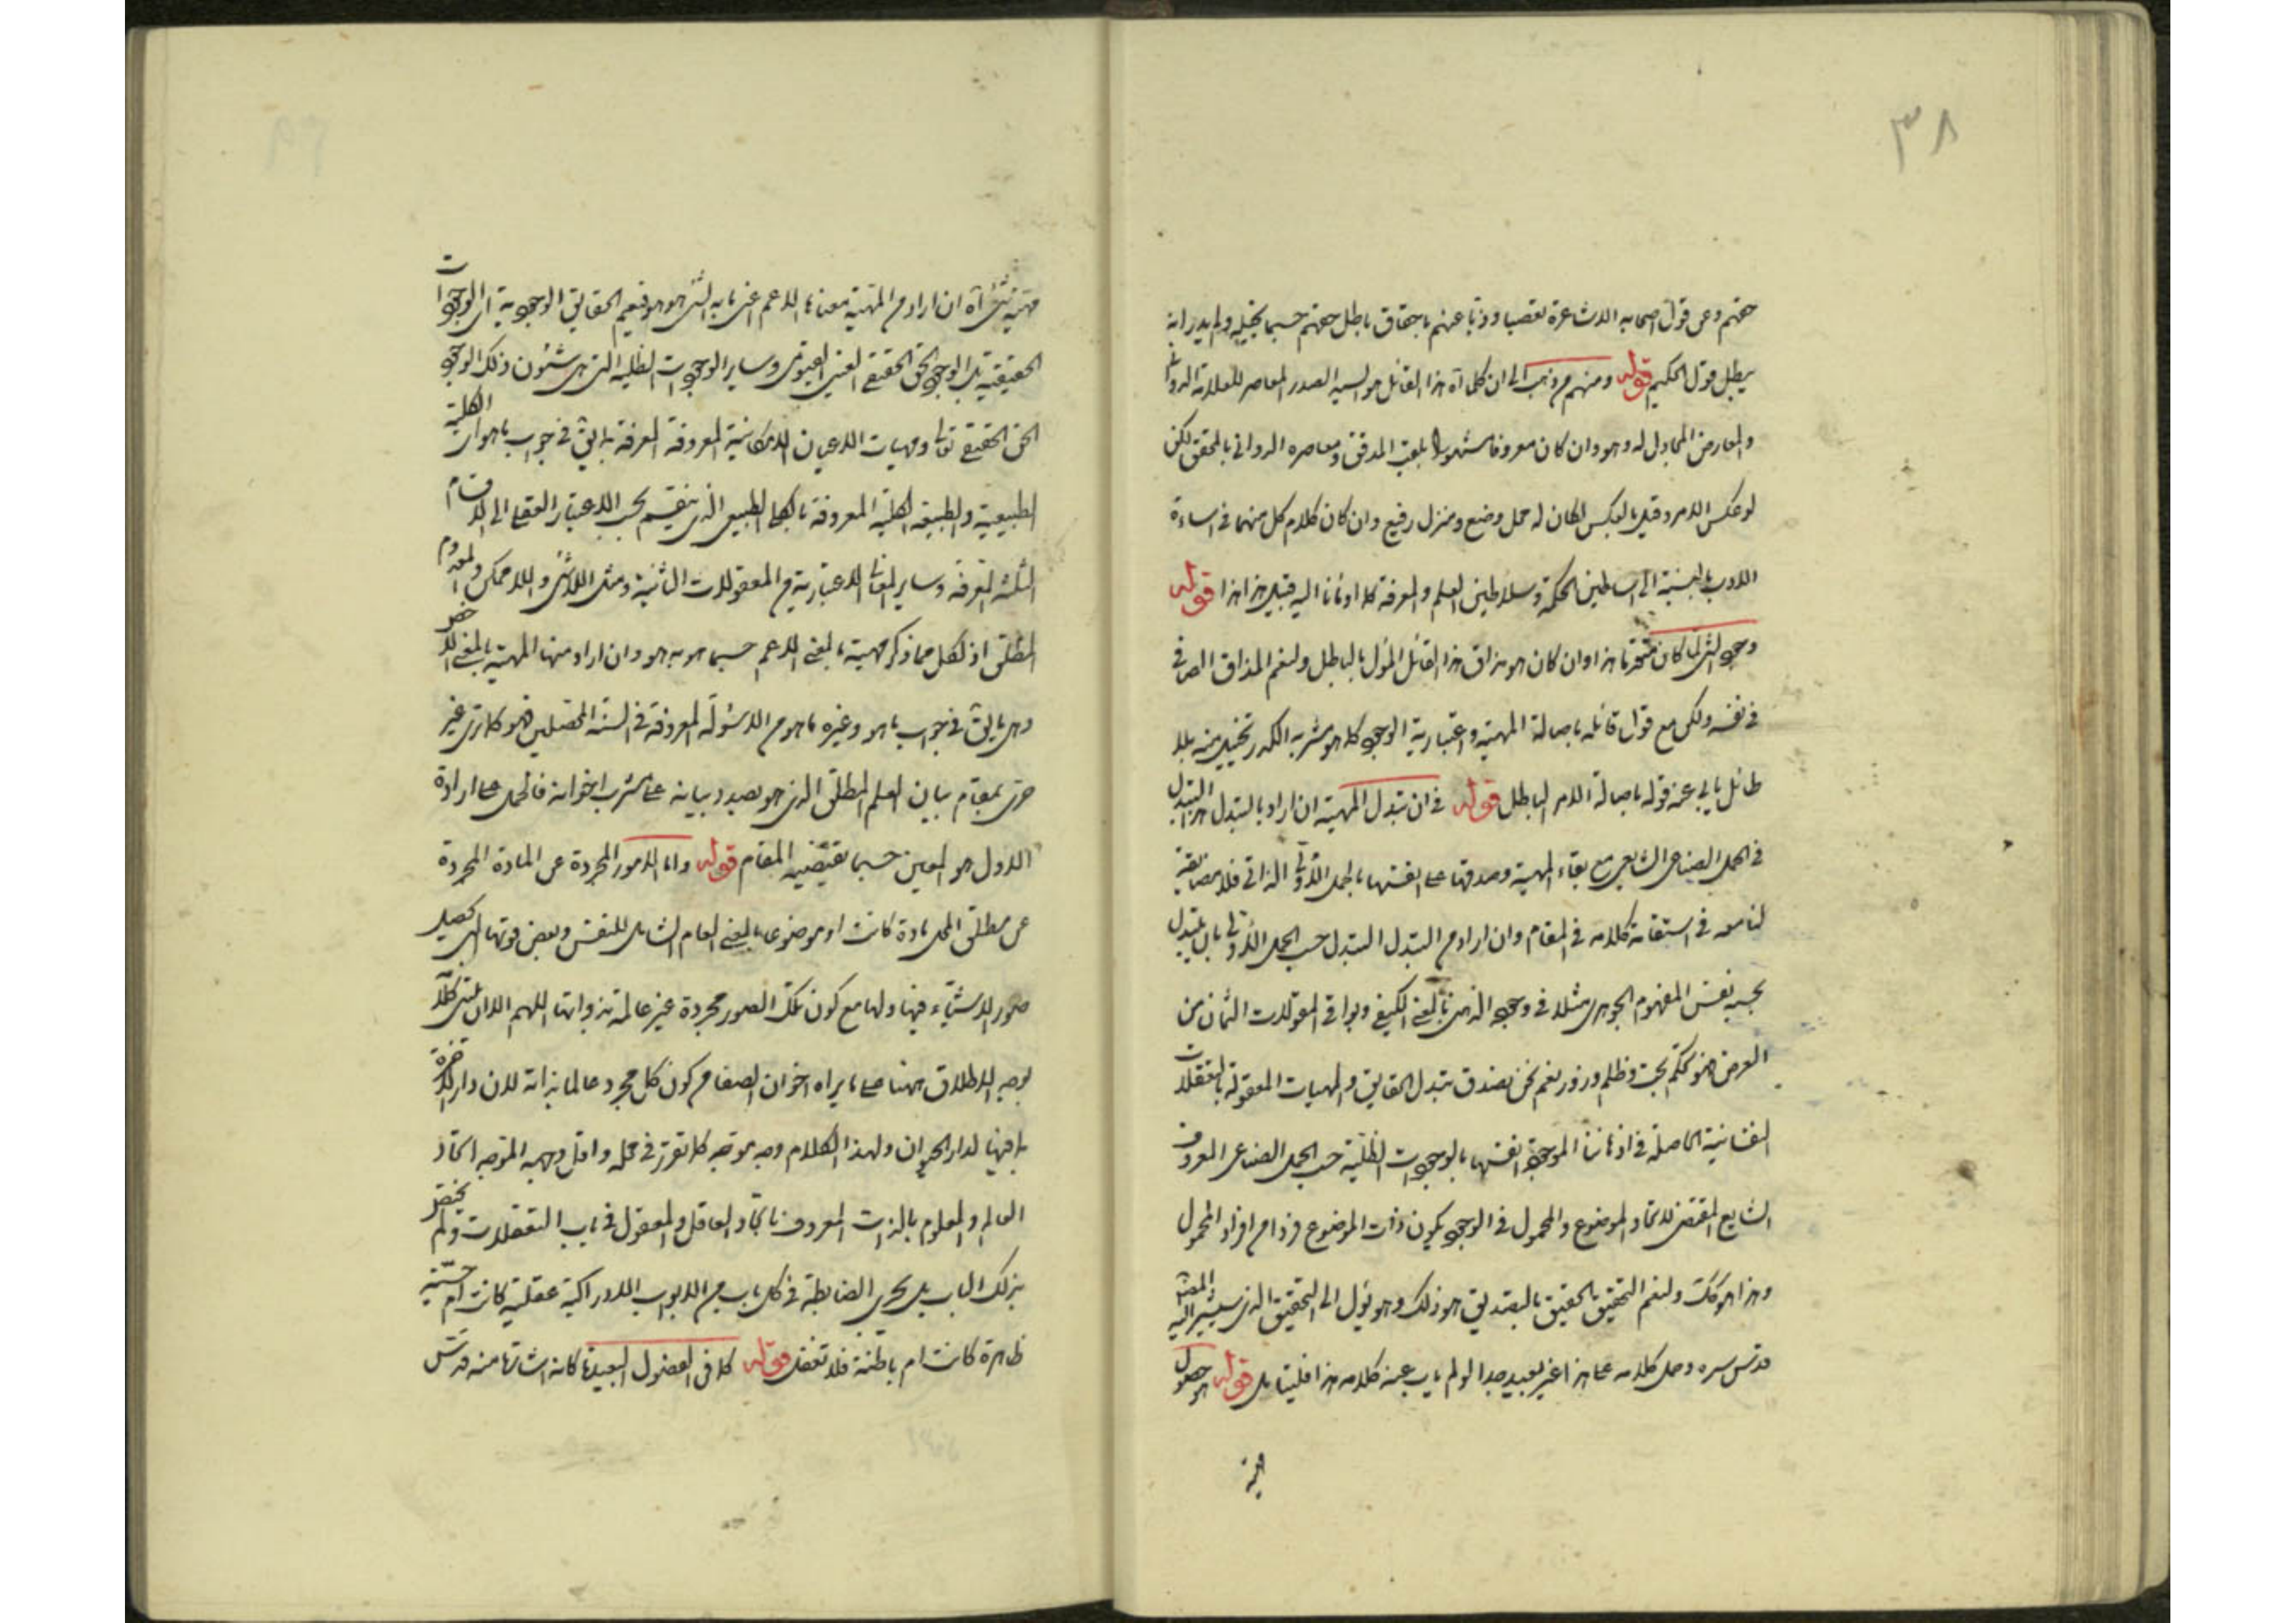 ٣٨
حقهم وعن قول اصحابه الاشاعرة تعصبا وذبا عنهم باحقاق باطل حقهم حسبما تخيله ولم يدر انه
يبطل قول الحكيم قوله ومنهم من ذهب الى ان كل آه هذا القائل هو السيد الصدر المعاصر للعلامة الدوانى
والمعارض المجادل له وهو وان كان معروفا مشهورا بلقب المدقق ومعاصره الدوانى بالمحقق لكن
لو عكس الامر وقيل بالعكس لكان له محل وضيع ومنزل رفيع وان كان كلام كل منهما فى اساءة
الادب بالنسبة الى اساطين الحكمة وسلاطين العلم والمعرفة كما اومأنا اليه قبيل هذا هذا قوله
وجود الشى لما كان متحرنا هذا وان كان هو مذاق هذا القائل المأول بالباطل ولنعم المذاق الصافى
فى نفسه ولكن مع قول قائله باصالة المهية واعتبارية الوجود كما هو مشربه الكدر تخييل منه بلا
طائل يأبى عنه قوله باصالة الامر الباطل قوله فى ان تبدل المهية ان اراد بالتبدل هذا التبدل
فى الحمل الصناعى الشايع مع بقاء المهية وصدقها على نفسها بالحمل الاولى الذاتى فلا مضايقة
لنا معه فى استقامة كلامه فى المقام وان اراد من التبدل التبدل حسب الحمل الاولى بان يتبدل
بحسبه نفس المفهوم الجوهرى مثلا فى وجود الذهنى بالمعنى الكيفى وبواقى المقولات الثمان من
العرض فهو تحكم بحت وظلم وزور نعم نحن نصدق تبدل الحقايق والمهيات المعقولة بالتعقلات
النفسانية الحاصلة فى اذهاننا الموجودة انفسها بالوجودات الظلية حسب الحمل الصناعى المعروف
الشايع المقتضى لاتحاد الموضوع والمحمول فى الوجود بكون ذات الموضوع فردا من افراد المحمول
وهذا هو كك ولنعم التحقيق الحقيق بالتصديق هو ذلك وهو يؤل الى التحقيق الذى سيشير اليه المصنف
قدس سره وحمل كلامه على هذا غير بعيد جدا لو لم ياب عنه كلامه هذا فليتامل قوله هو حصول
مهية
مهية شى آه ان اراد من المهية معناها الاعم اعنى ما به الشى هو هو فيعم الحقايق الوجودية اى الوجودات
الحقيقية بل الوجود الحق الحقيقى الغنى القيومى وساير الوجودات الظلية التى هى شئون ذلك الوجود
الحق الحقيقى تعالى ومهيات الاعيان الامكانية المعروفة المعرفة بما يق فى جواب ما هو اى الكلية
الطبيعية والطبيعة الكلية المعروفة بالكلى الطبيعى الذى ينقسم بحسب الاعتبار العقلى الى الاقسام
الثلثة المعرفة وساير المعانى الاعتبارية من المعقولات الثانية ومثل اللاشى واللاممكن والمعدوم
المطلق اذ لكل مما ذكر مهية بالمعنى الاعم حسبما هو به هو وان اراد منها المهية بالمعنى الاخص
وهى ما يق فى جواب ما هو وغيره ما هو من الاسئولة المعروفة فى السنة المحصلين فهو كما ترى غير
حرى بمقام بيان العلم المطلق الذى هو بصدد بيانه على مشرب اخوانه فالحمل على ارادة
الاول هو المعين حسبما يقتضيه المقام قوله واما الامور المجردة عن المادة المجردة
عن مطلق المحل مادة كانت او موضوعا بالمعنى العام الشامل للنفس وبعض قوتها التى تحصيل
صور الاشياء فيها ولها مع كون تلك الصور مجردة غير عالمة بذواتها اللهم الا ان يبتنى كلا
بوجه الاطلاق ههنا على ما يراه اخوان الصفا من كون كل مجرد عالما بذاته لان دار الاخرة
بما فيها لدار الحيوان ولهذا الكلام وجه موجه كما تقرر فى محله واقل وجهه الموجه اتحاد
العالم والمعلوم بالذات المعروف باتحاد العاقل والمعقول فى باب التعقلات ولم يختص
بذلك الباب بل يجرى الضابطة فى كل باب من الابواب الادراكية عقلية كانت ام حسية
ظاهرة كانت ام باطنة فلا تغفل قوله كما فى الفصول البعيدة كانه اشارة منه قدس